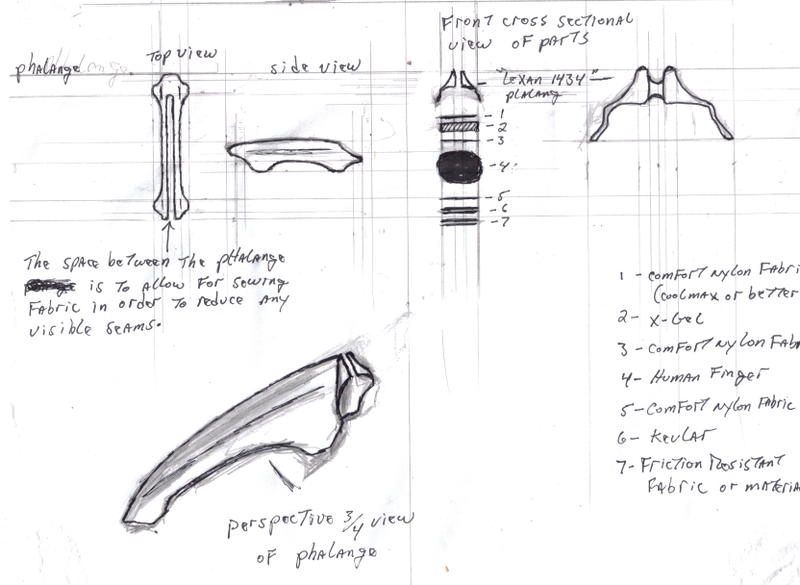 Front cross sectional
view of parts
phalange
Top view
side view
"Lexan 1434"
phalang
1
2
3
4
5
6
7
The space between the phalange
is to allow for sewing
Fabric in order to reduce any
visible seams.
1 - comfort nylon Fabri
(coolmax or better
2 - X-Gel
3 - comfort nylon Fab
4 - Human Finger
5 - comfort nylon Fabric
6 - Kevlar
7 - Friction Resistant
Fabric or materia
perspective 3/4 view
of phalange